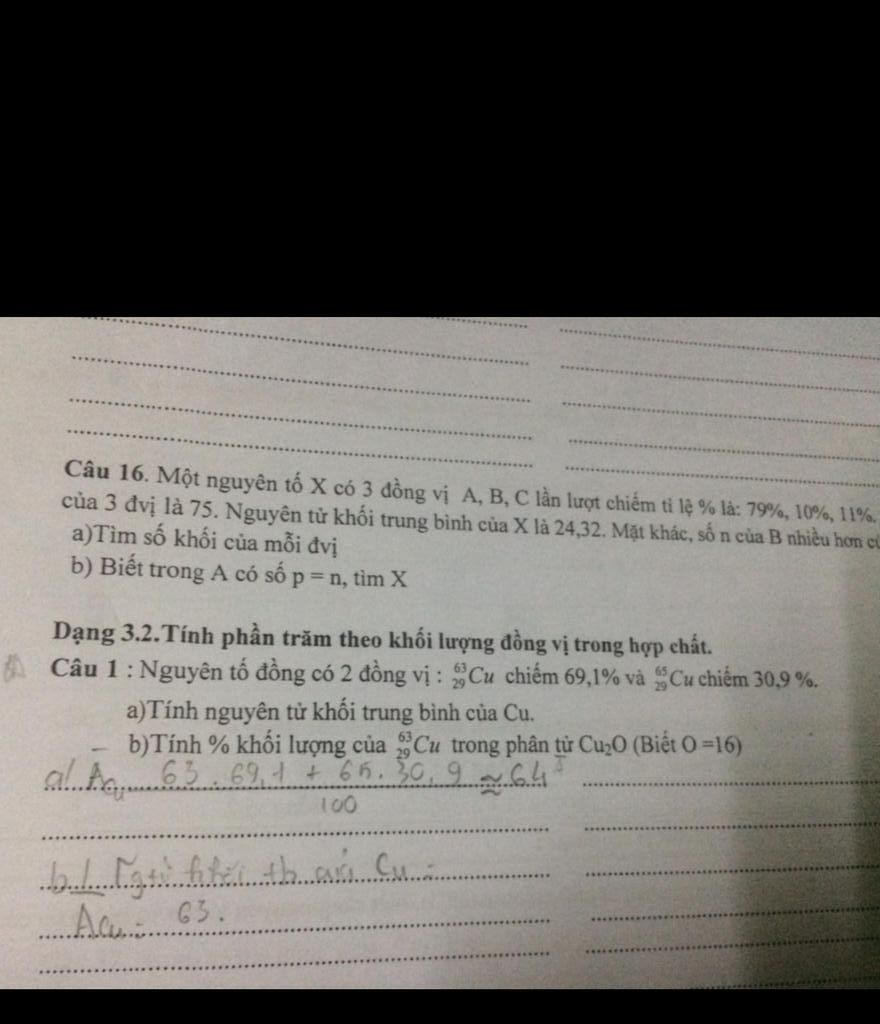 Câu 16. Một nguyên tố X có 3 đồng vị A, B, C lần lượt chiếm tỉ lệ % là: 79%, 10%, 11%.
của 3 đvị là 75. Nguyên tử khối trung bình của X là 24,32. Mặt khác, số n của B nhiều hơn
a)Tìm số khối của mỗi đvị
b) Biết trong A có số p = n, tìm X
Dạng 3.2.Tính phần trăm theo khối lượng đồng vị trong hợp chất.
Câu 1 : Nguyên tố đồng có 2 đồng vị : ⁶³₂₉Cu chiếm 69,1% và ⁶⁵₂₉Cu chiếm 30,9 %.
a)Tính nguyên tử khối trung bình của Cu.
b)Tính % khối lượng của ⁶³₂₉Cu trong phân tử Cu₂O (Biết O =16)
a/ A̅Cu = 63 . 69,1 + 65 . 30,9 ≈ 64
100
b/ khối tb Cu =
ACu = 63.